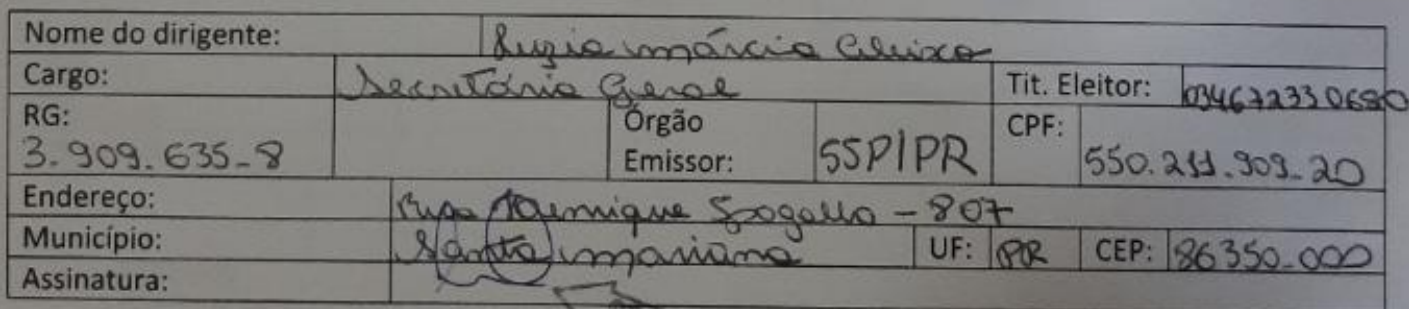 Nome do dirigente: Luzia Márcia
Cargo: Secretária Geral Tit. Eleitor: 034672330680
RG: Órgão Emissor: SSP/PR CPF: 550.211.909-20
3.909.635-8
Endereço: Rua Henrique - 807
Município: Santa Mariana UF: PR CEP: 86350-000
Assinatura: